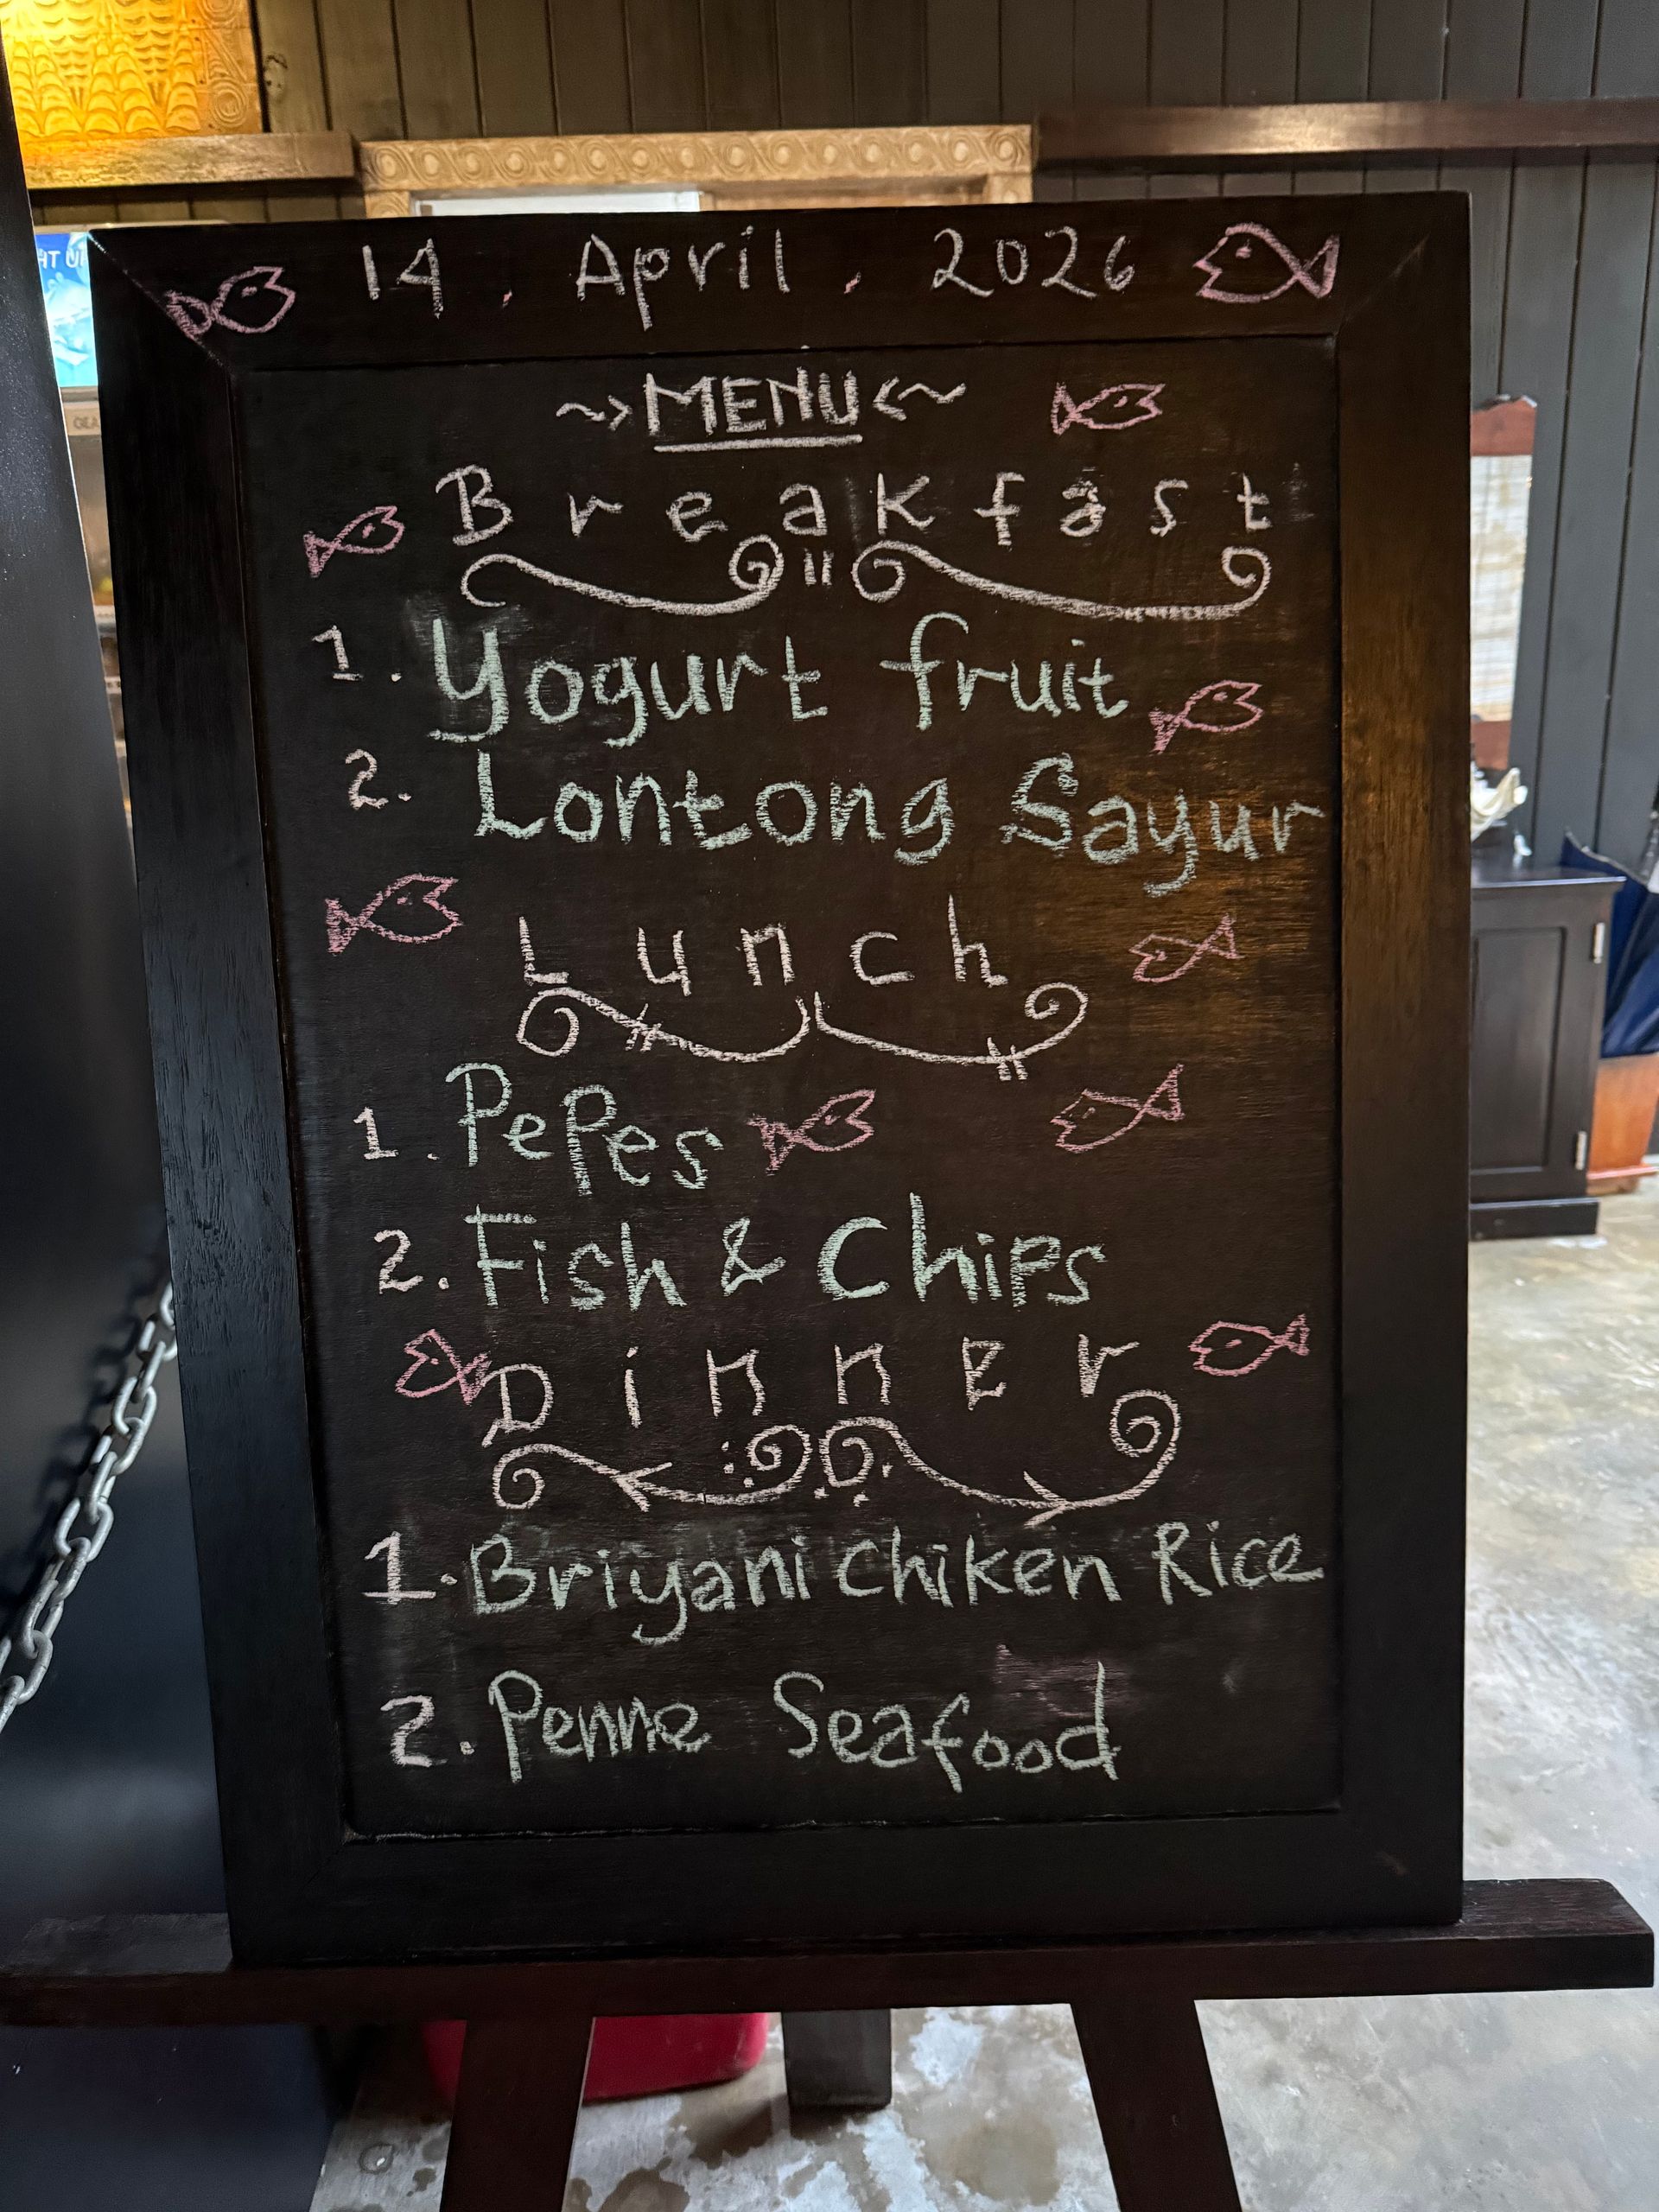 14 . April . 2026
~>MENU<~
Breakfast
1. Yogurt fruit
2. Lontong Sayur
Lunch
1. Pepes
2. Fish & Chips
Dinner
1. Briyani Chiken Rice
2. Penne Seafood